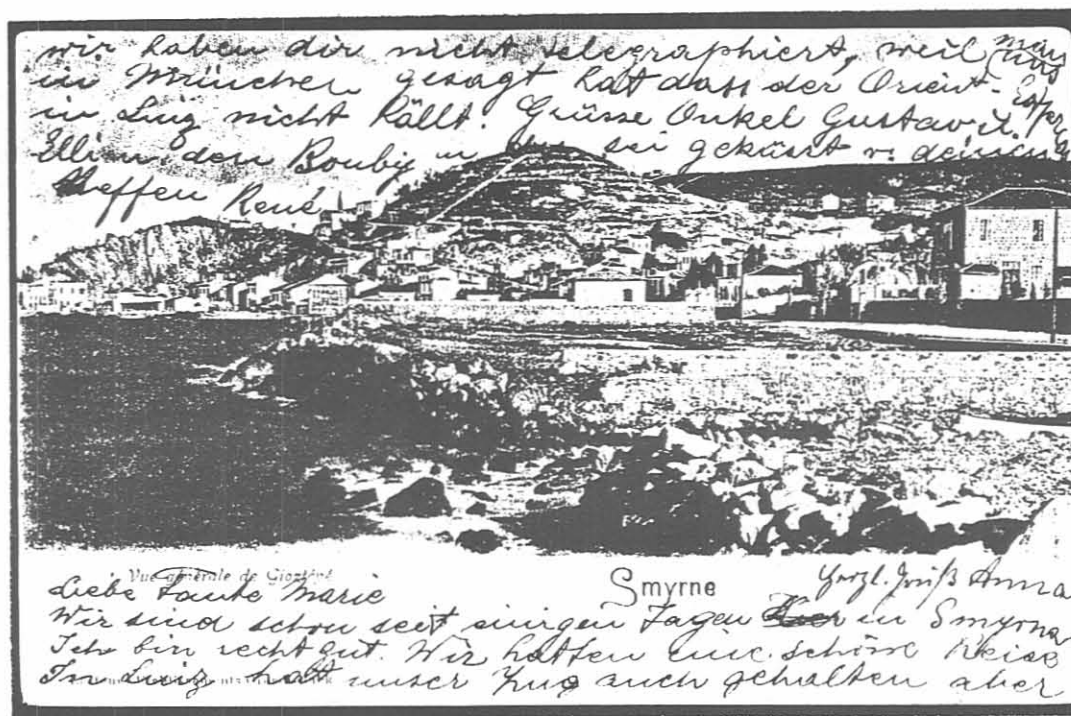 wir haben dir nicht telegraphiert, weil man uns
in München gesagt hat dass der Orient-Expr
in Linz nicht hällt. Grüsse Onkel Gustav u.
Elli u. den Bouby u sei geküsst v. deinem
Neffen René
Vue générale de Gioztépé
Smyrne
Herzl. Gruß Anna
Liebe Tante Marie
Wir sind schon seit einigen Tagen Hier in Smyrna
Ich bin recht gut. Wir hatten eine schöne Reise
In Linz hatt unser Zug auch gehalten aber